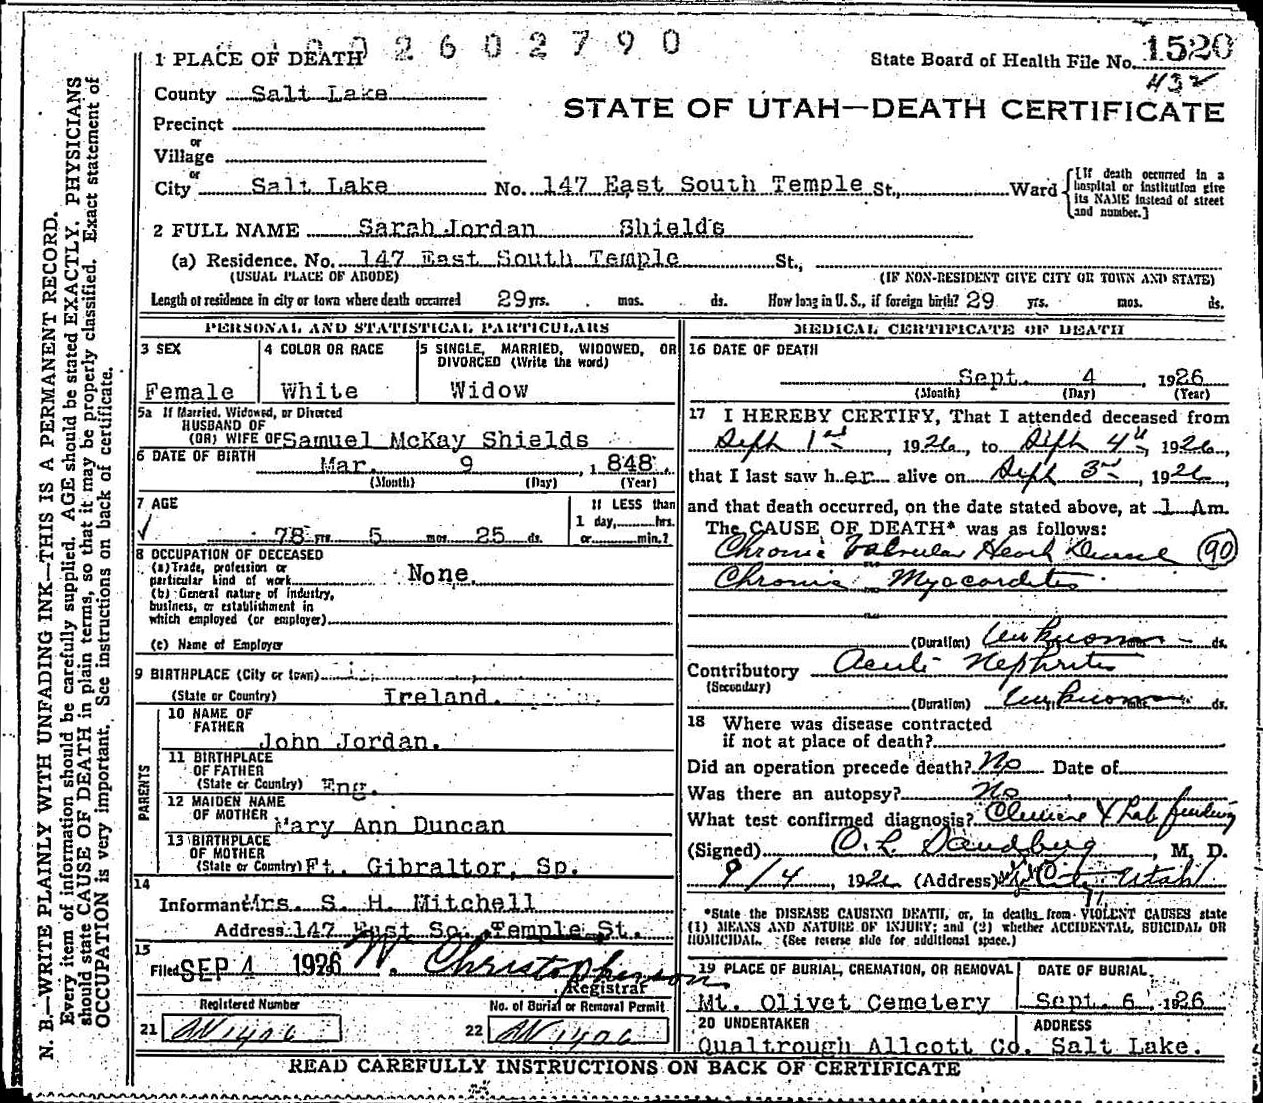 2602790
1 PLACE OF DEATH
State Board of Health File No. 1520
432
County Salt Lake
STATE OF UTAH—DEATH CERTIFICATE
Precinct
or
Village
or
City Salt Lake No. 147 East South Temple St., Ward
[If death occurred in a hospital or institution give its NAME instead of street and number.]
2 FULL NAME Sarah Jordan Shields
(a) Residence. No. 147 East South Temple St.,
(USUAL PLACE OF ABODE) (IF NON-RESIDENT GIVE CITY OR TOWN AND STATE)
Length of residence in city or town where death occurred 29 yrs. mos. ds. How long in U. S., if foreign birth? 29 yrs. mos. ds.
PERSONAL AND STATISTICAL PARTICULARS
3 SEX
Female
4 COLOR OR RACE
White
5 SINGLE, MARRIED, WIDOWED, OR
DIVORCED (Write the word)
Widow
5a If Married, Widowed, or Divorced
HUSBAND OF
(OR) WIFE OF Samuel McKay Shields
6 DATE OF BIRTH
Mar. 9, 1848.
(Month) (Day) (Year)
7 AGE
78 yrs 5 mos 25 ds.
If LESS than
1 day, hrs.
or min.?
8 OCCUPATION OF DECEASED
(a) Trade, profession or
particular kind of work None.
(b) General nature of industry,
business, or establishment in
which employed (or employer)
(c) Name of Employer
9 BIRTHPLACE (City or town)
(State or Country) Ireland.
PARENTS
10 NAME OF
FATHER
John Jordan.
11 BIRTHPLACE
OF FATHER
(State or Country) Eng.
12 MAIDEN NAME
OF MOTHER
Mary Ann Duncan
13 BIRTHPLACE
OF MOTHER
(State or Country) Ft. Gibraltor, Sp.
14
Informant Mrs. S. H. Mitchell
Address 147 East So. Temple St.
15
Filed SEP 4 1926 W. Christopherson
Registrar
Registered Number No. of Burial or Removal Permit
21 1406 22 1406
MEDICAL CERTIFICATE OF DEATH
16 DATE OF DEATH
Sept. 4, 1926
(Month) (Day) (Year)
17 I HEREBY CERTIFY, That I attended deceased from
Sept 1st, 1926, to Sept 4th, 1926,
that I last saw her alive on Sept 3rd, 1926
and that death occurred, on the date stated above, at 1 Am.
The CAUSE OF DEATH* was as follows:
Chronic Valvular Heart Disease (90)
Chronic Myocarditis
(Duration) Unknown ds.
Contributory Acute Nephritis
(Secondary)
(Duration) Unknown ds.
18 Where was disease contracted
if not at place of death?
Did an operation precede death? No Date of
Was there an autopsy? No
What test confirmed diagnosis? Clinical & Lab finding
(Signed) O. L. Sandberg, M. D.
9/4, 1926 (Address) City Utah
*State the DISEASE CAUSING DEATH, or, in deaths from VIOLENT CAUSES state
(1) MEANS AND NATURE OF INJURY; and (2) whether ACCIDENTAL, SUICIDAL OR
HOMICIDAL. (See reverse side for additional space.)
19 PLACE OF BURIAL, CREMATION, OR REMOVAL
Mt. Olivet Cemetery
DATE OF BURIAL
Sept. 6, 1926
20 UNDERTAKER ADDRESS
Qualtrough Allcott Co. Salt Lake.
READ CAREFULLY INSTRUCTIONS ON BACK OF CERTIFICATE
N. B.—WRITE PLAINLY WITH UNFADING INK—THIS IS A PERMANENT RECORD.
Every item of information should be carefully supplied. AGE should be stated EXACTLY. PHYSICIANS
should state CAUSE OF DEATH in plain terms, so that it may be properly classified. Exact statement of
OCCUPATION is very important. See instructions on back of certificate.